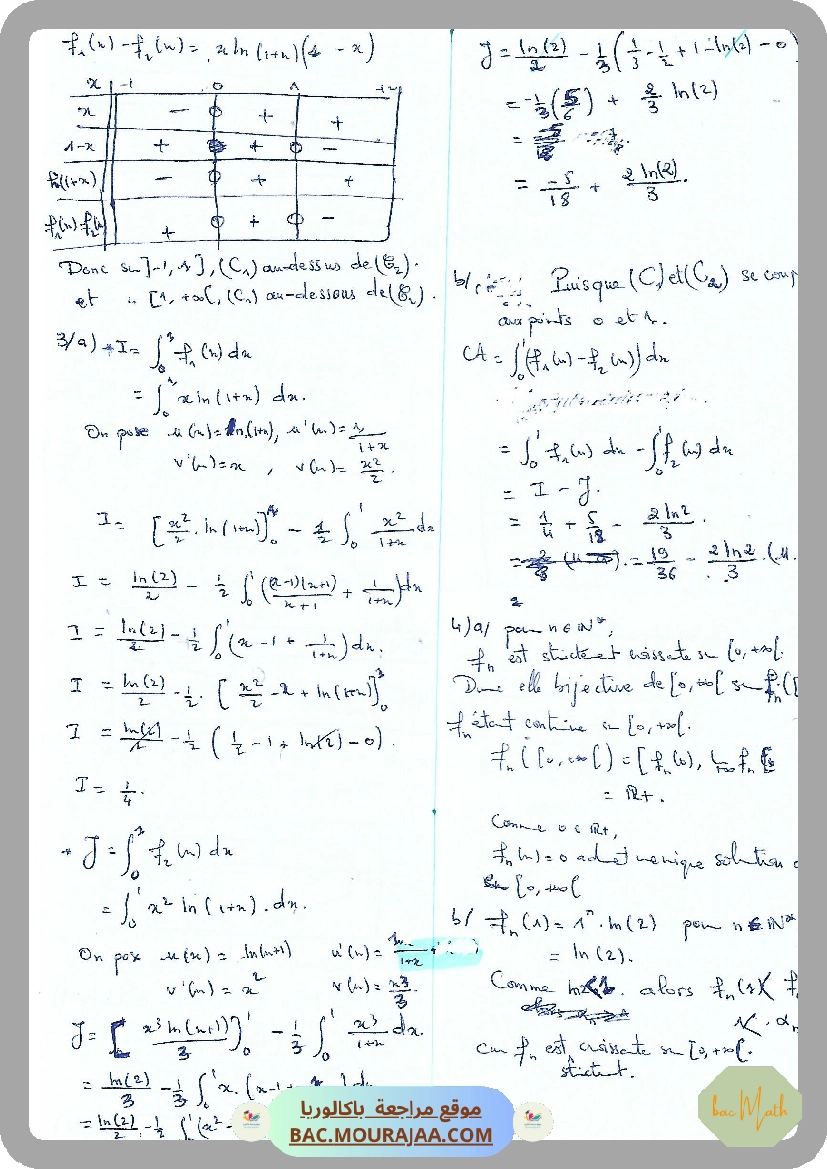 f₁(x) - f₂(x) = x ln(1+x)(1 - x)
x | -1 0 1 +∞
x | - 0 + +
1-x | + + 0 -
ln(1+x) | - 0 + +
f₁(x)-f₂(x) | + 0 + 0 -
Donc sur ]-1, 1], (C₁) au-dessus de (C₂).
et " [1, +∞[, (C₁) au-dessous de (C₂).
3/a) * I = ∫₀¹ f₁(x) dx
= ∫₀¹ x ln(1+x) dx.
On pose u(x) = ln(1+x), u'(x) = 1/(1+x)
v'(x) = x , v(x) = x²/2.
I = [x²/2 . ln(1+x)]₀¹ - 1/2 ∫₀¹ x²/(1+x) dx
I = ln(2)/2 - 1/2 ∫₀¹ ((x-1)(x+1)/(x+1) + 1/(1+x)) dx
I = ln(2)/2 - 1/2 ∫₀¹ (x - 1 + 1/(1+x)) dx.
I = ln(2)/2 - 1/2 . [x²/2 - x + ln(1+x)]₀¹
I = ln(2)/2 - 1/2 (1/2 - 1 + ln(2) - 0).
I = 1/4.
* J = ∫₀¹ f₂(x) dx
= ∫₀¹ x² ln(1+x) . dx.
On pose u(x) = ln(x+1) u'(x) = 1/(1+x)
v'(x) = x² v(x) = x³/3.
J = [x³ ln(x+1)/3]₀¹ - 1/3 ∫₀¹ x³/(1+x) dx.
= ln(2)/3 - 1/3 ∫₀¹ x.(x-1+ ) dx
= ln(2)/2 - 1/2 ∫₀¹ (x² -
J = ln(2)/2 - 1/3 (1/3 - 1/2 + 1 - ln(2) - 0
= -1/3 (5/6) + 2/3 ln(2)
= -5/18 + 2 ln(2)/3.
b/ Puisque (C₁) et (C₂) se coup
aux points 0 et 1.
A = ∫₀¹ (f₁(x) - f₂(x)) dx
= ∫₀¹ f₁(x) dx - ∫₀¹ f₂(x) dx
= I - J.
= 1/4 + 5/18 - 2 ln2/3.
= 19/36 - 2 ln2/3 . (u.
4)a/ pour n ∈ IN*,
fₙ est strictet croissate sur [0, +∞[.
Donc elle bijective de [0, +∞[ sur fₙ([
fₙ étant continue sur [0, +∞[.
fₙ([0, +∞[) = [fₙ(0), lim fₙ [
+∞
= IR+.
Comme 0 ∈ IR+,
fₙ(x) = 0 admet une unique solution
sur [0, +∞[
b/ fₙ(1) = 1ⁿ . ln(2) pour n ∈ IN*
= ln(2).
Comme alors fₙ(1) < f
1 < αₙ
car fₙ est croissate sur [0, +∞[.
strictet.
موقع مراجعة باكالوريا
BAC.MOURAJAA.COM
bac Math